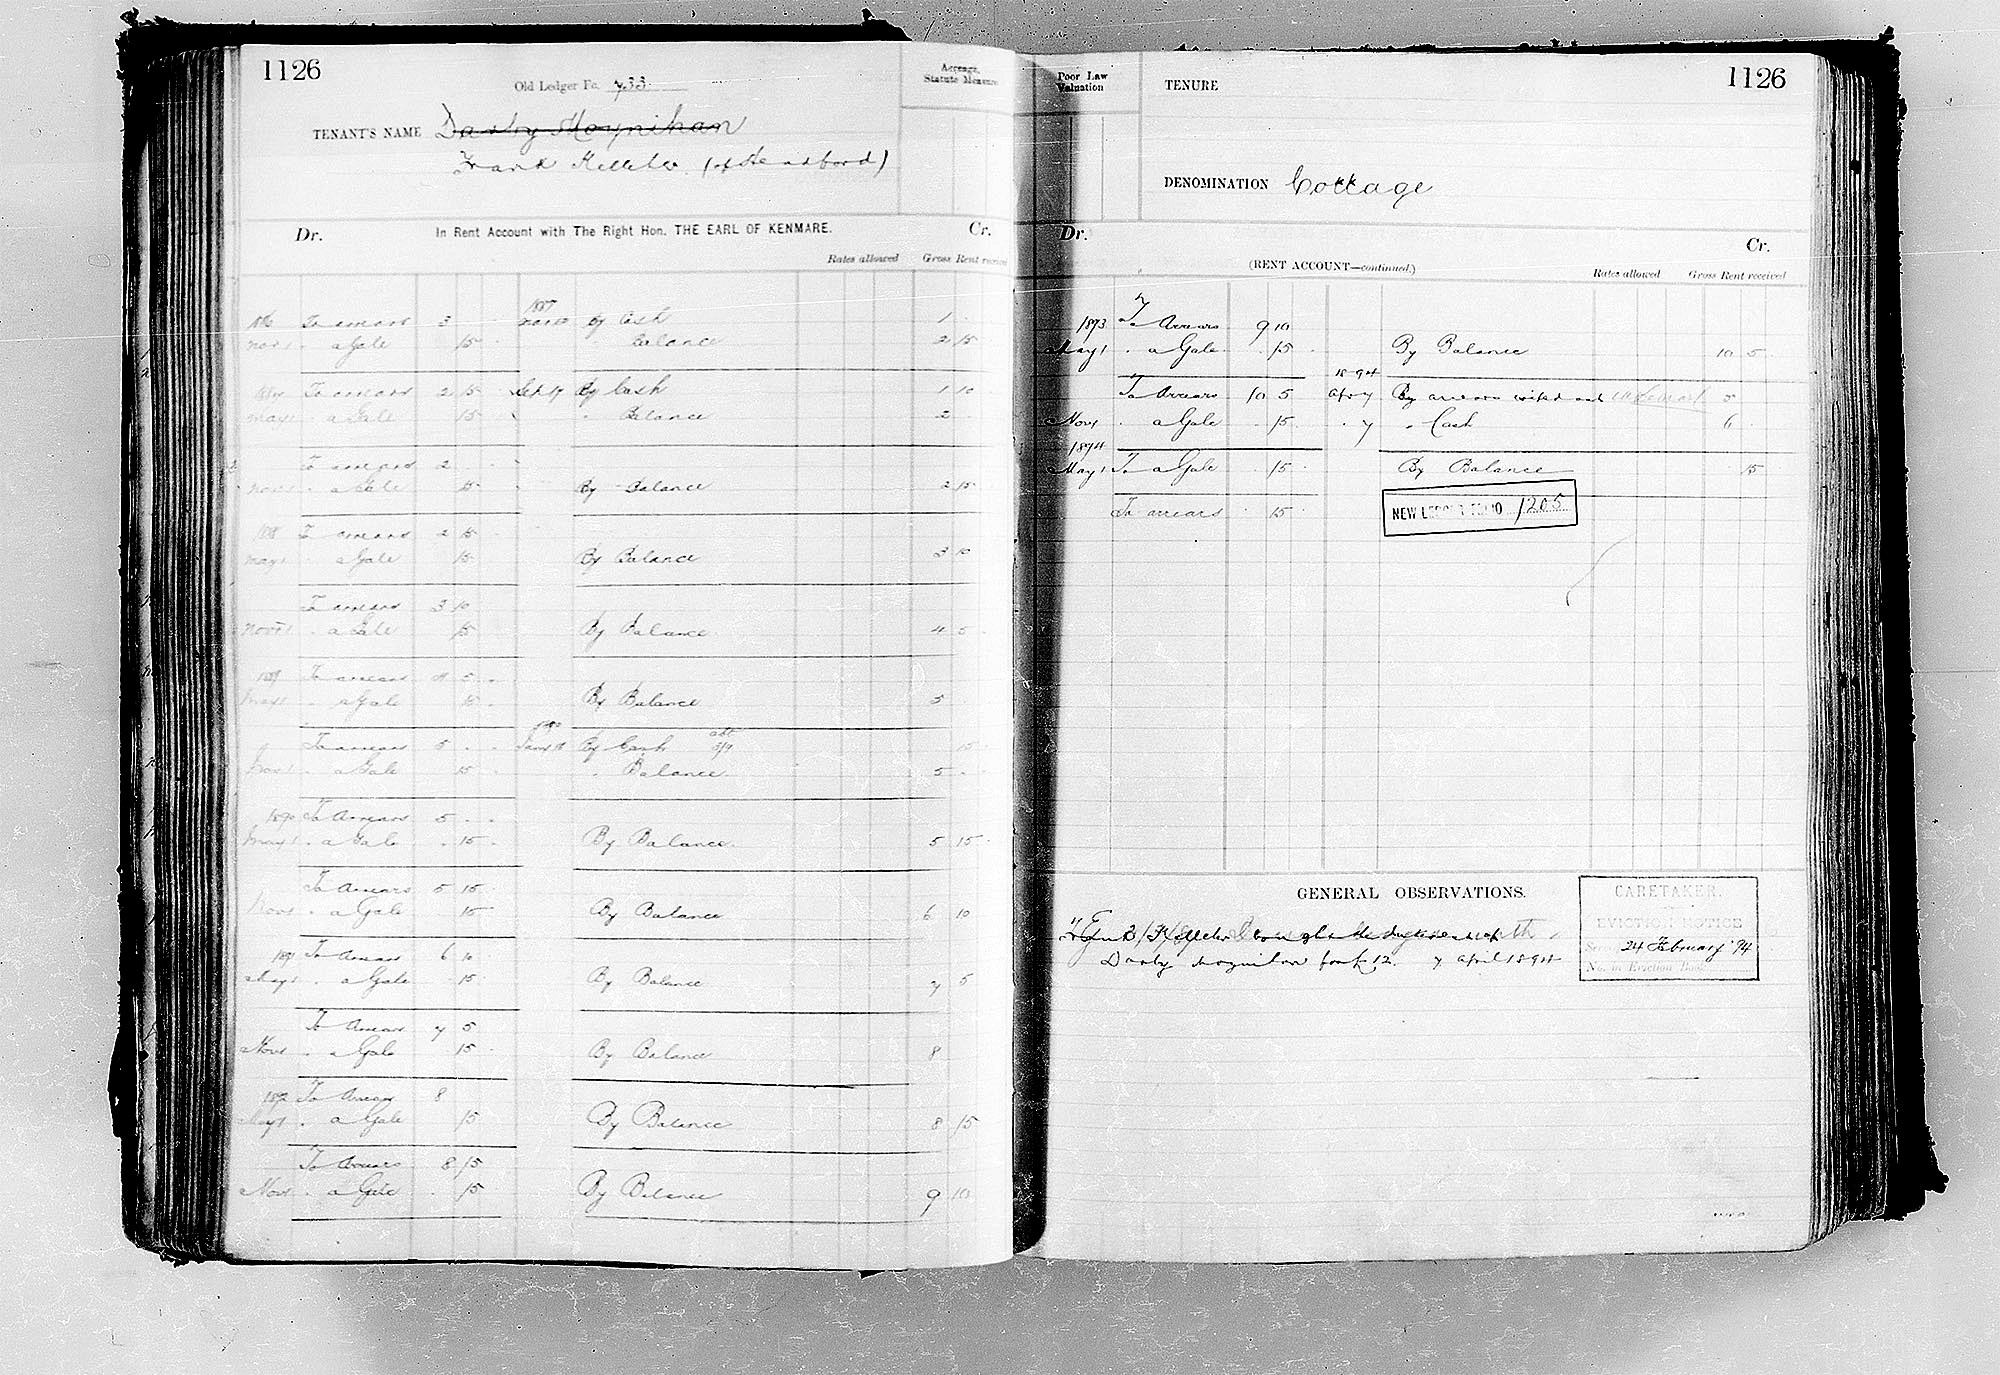 1126
Old Ledger Fo. 733
Acreage, Statute Measure
TENANT'S NAME Darby Moynihan
Frank Kelleher (of Headford)
Dr. In Rent Account with The Right Hon. THE EARL OF KENMARE. Cr.
Rates allowed Gross Rent received
1887
1886 To arrears 3 By Cash 1
Nov 1 " a Gale 15 " Balance 2 15
To arrears 2 15 Sept 17 By Cash 1 10
May 1 " a Gale 15 " Balance 2
To arrears 2
Nov 1 " a Gale 15 By Balance 2 15
1888 To arrears 2 15
May 1 a Gale 15 By Balance 3 10
To arrears 3 10
Nov 1 " a Gale 15 By Balance 4 5
1889 To arrears 4 5
May 1 a Gale 15 By Balance 5
1890
To arrears 5 By Cash 15
Nov 1 " a Gale 15 " Balance 5
1890 To Arrears 5
May 1 " a Gale 15 By Balance 5 15
To Arrears 5 15
Nov 1 " a Gale 15 By Balance 6 10
1891 To Arrears 6 10
May 1 " a Gale 15 By Balance 7 5
To Arrears 7 5
Nov 1 " a Gale 15 By Balance 8
1892 To Arrears 8
May 1 " a Gale 15 By Balance 8 15
To Arrears 8 15
Nov 1 " a Gale 15 By Balance 9 10
1126
Poor Law Valuation
TENURE
DENOMINATION Cottage
Dr. Cr.
(RENT ACCOUNT—continued.)
Rates allowed Gross Rent received
1893 To Arrears 9 10
May 1 " a Gale 15 By Balance 10 5
1894
To Arrears 10 5 Apr 7 By arrears wiped out 5
Nov 1 " a Gale 15 " 7 " Cash 6
1894
May 1 To a Gale 15 By Balance 15
To arrears 15
NEW LEDGER FOLIO 1205
GENERAL OBSERVATIONS.
CARETAKER.
EVICTION NOTICE
Served 24 February '94
No. in Eviction Book
Kelleher bought the interest of
Darby Moynihan for £12. 7 April 1894